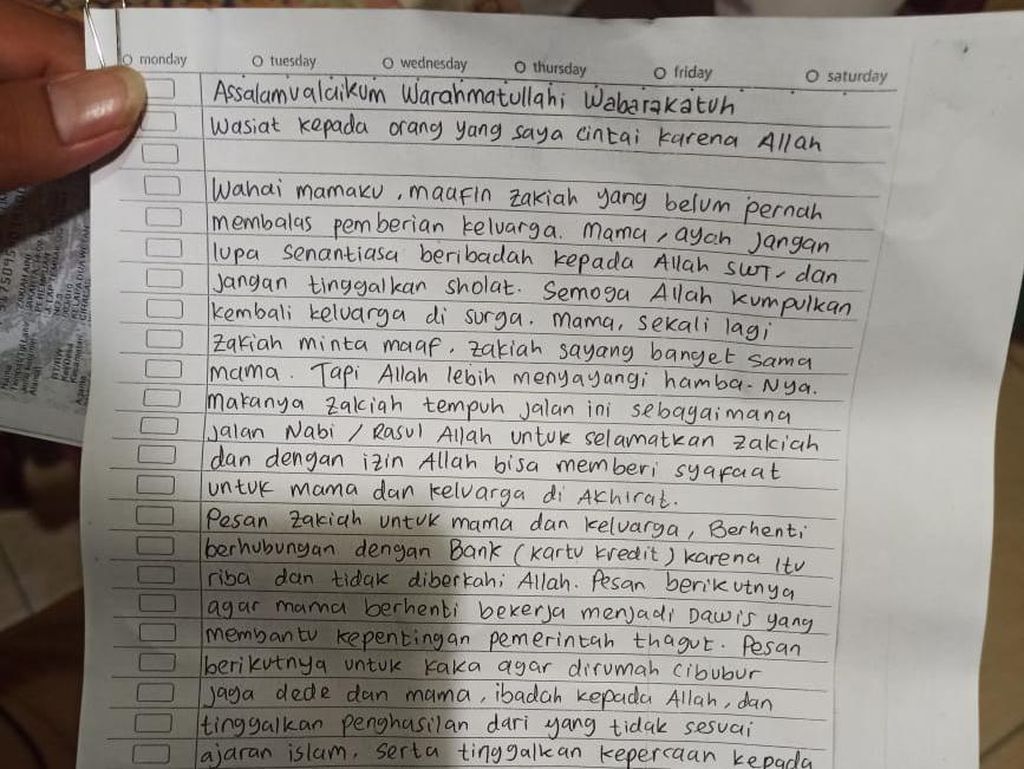 monday tuesday wednesday thursday friday saturday
Assalamualaikum Warahmatullahi Wabarakatuh
Wasiat kepada orang yang saya cintai karena Allah
Wahai mamaku, maafin zakiah yang belum pernah
membalas pemberian keluarga. Mama, ayah jangan
lupa senantiasa beribadah kepada Allah SWT, dan
jangan tinggalkan sholat. Semoga Allah kumpulkan
kembali keluarga di surga. Mama, sekali lagi
zakiah minta maaf, zakiah sayang banget sama
mama. Tapi Allah lebih menyayangi hamba-Nya.
makanya zakiah tempuh jalan ini sebagaimana
jalan Nabi / Rasul Allah untuk selamatkan zakiah
dan dengan izin Allah bisa memberi syafaat
untuk mama dan keluarga di Akhirat.
Pesan zakiah untuk mama dan keluarga, Berhenti
berhubungan dengan Bank (kartu kredit) karena itu
riba dan tidak diberkahi Allah. Pesan berikutnya
agar mama berhenti bekerja menjadi Dawis yang
membantu kepentingan pemerintah thagut. Pesan
berikutnya untuk kaka agar dirumah cibubur
jaga dede dan mama, ibadah kepada Allah, dan
tinggalkan penghasilan dari yang tidak sesuai
ajaran islam, serta tinggalkan kepercaan kepada